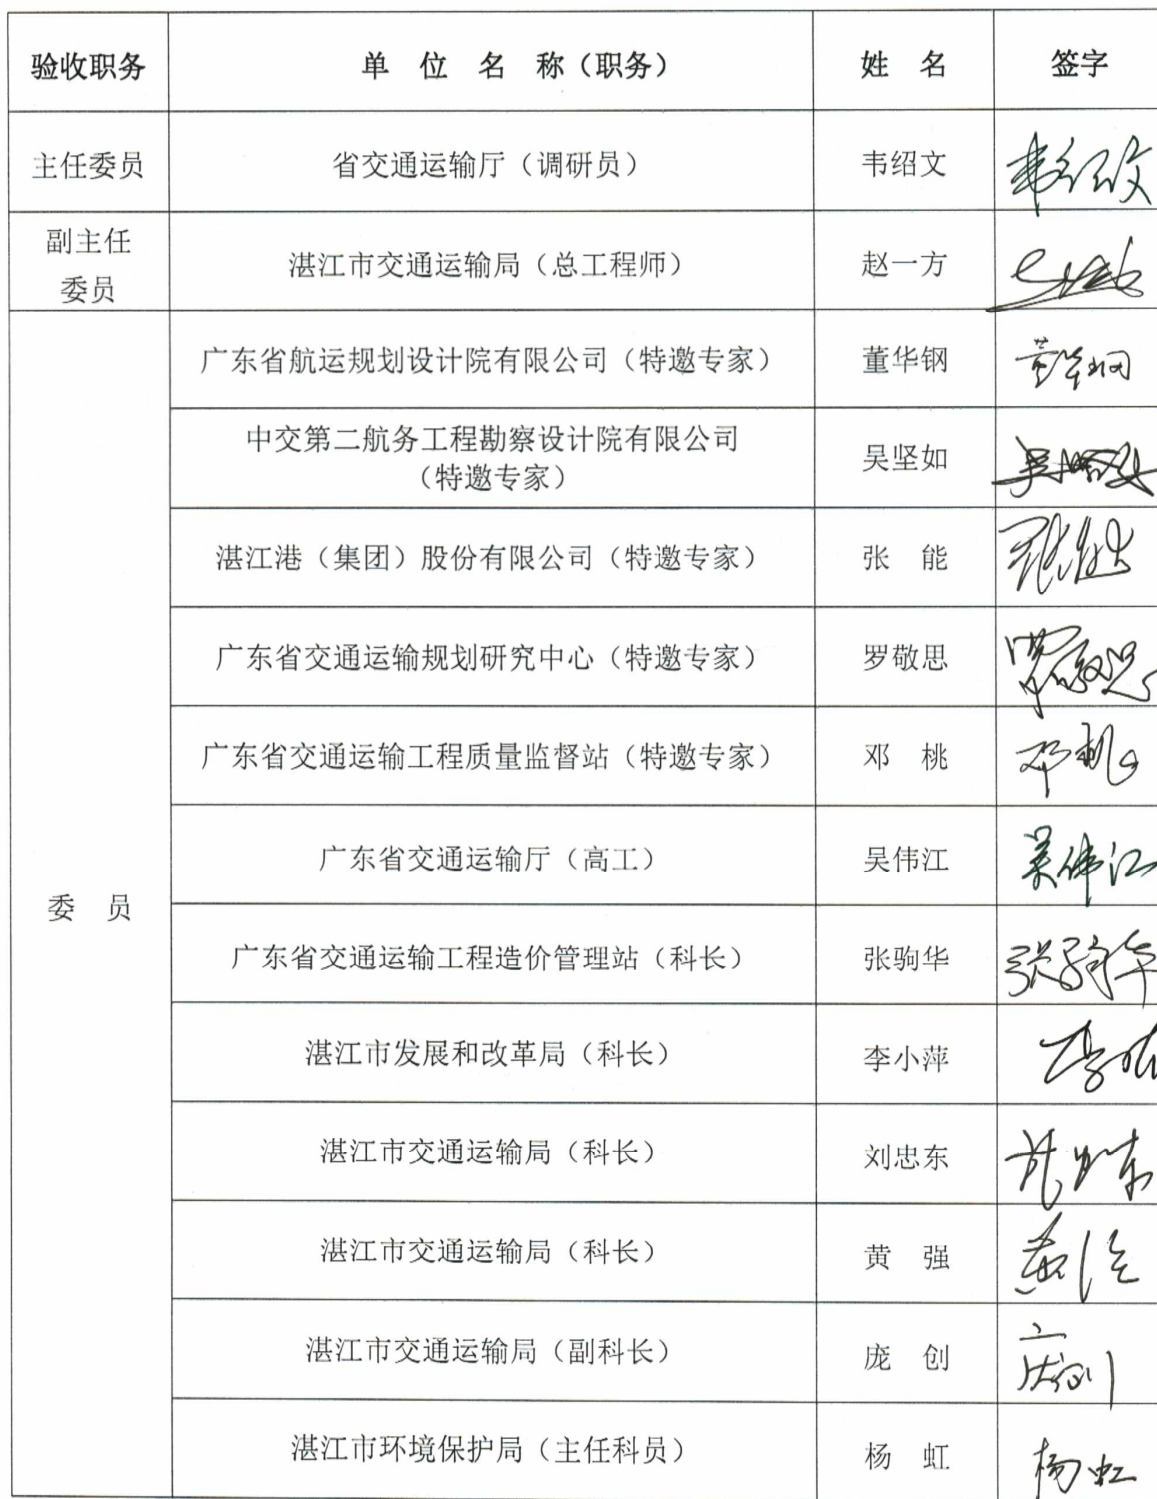 验收职务 单 位 名 称（职务） 姓 名 签字
主任委员 省交通运输厅（调研员） 韦绍文
副主任
委员 湛江市交通运输局（总工程师） 赵一方
广东省航运规划设计院有限公司（特邀专家） 董华钢 董华钢
中交第二航务工程勘察设计院有限公司
（特邀专家） 吴坚如
湛江港（集团）股份有限公司（特邀专家） 张 能
广东省交通运输规划研究中心（特邀专家） 罗敬思 罗敬思
广东省交通运输工程质量监督站（特邀专家） 邓 桃 邓桃
广东省交通运输厅（高工） 吴伟江 吴伟江
委 员 广东省交通运输工程造价管理站（科长） 张驹华 张驹华
湛江市发展和改革局（科长） 李小萍
湛江市交通运输局（科长） 刘忠东
湛江市交通运输局（科长） 黄 强 黄强
湛江市交通运输局（副科长） 庞 创 庞创
湛江市环境保护局（主任科员） 杨 虹 杨虹